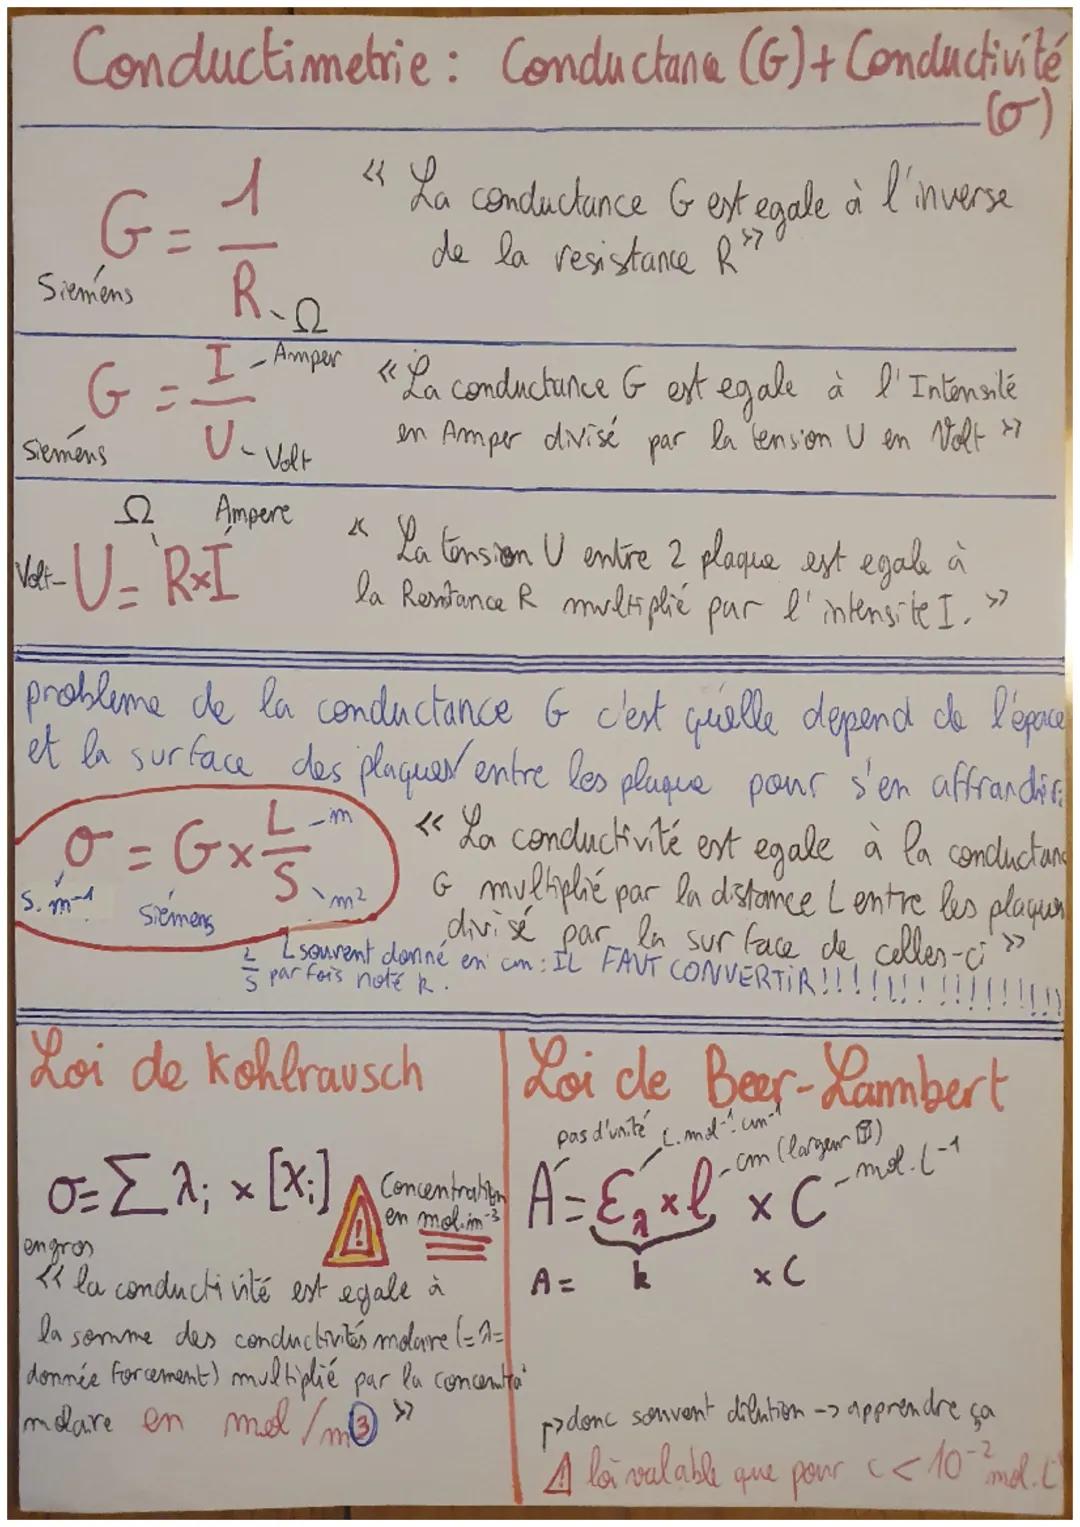 Conductimetrie : Conductance (G) + Conductivité
(σ)
G = 1/R
Siemens
Ω
<< La conductance G est egale à l'inverse
de la resistance R >>
G = I/U
Amper
Siemens
Volt
<< La conductance G est egale à l'Intensité
en Amper divisé par la tension U en Volt >>
Ω Ampere
Volt - U = R×I
<< La tension U entre 2 plaque est egale à
la Resistance R multiplié par l'intensite I. >>
probleme de la conductance G c'est qu'elle depend de l'épace
et la surface des plaques/entre les plaque pour s'en affranchir:
σ = G × L/S
m
S.m-1
Siemens
m²
<< La conductivité est egale à la conductanc
G multiplié par la distance L entre les plaques
divisé par la surface de celles-ci >>
L souvent donné en cm : IL FAUT CONVERTIR!!!!!!!!!!!!!!!!!
L/S par fois noté k.
Loi de Kohlrausch
σ = Σ λi × [Xi]
! Concentration
en mol.m-3
en gros
<< la conductivité est egale à
la somme des conductivités molaire (=λ=
donnée forcement) multiplié par la concentra°
molaire en mol/m3 >>
Loi de Beer-Lambert
pas d'unité L.mol-1.cm-1
cm (largeur)
mol.L-1
A = ελ × l × C
A = k × C
→ donc souvent dilution → apprendre ça
! loi valable que pour c < 10-2 mol.L